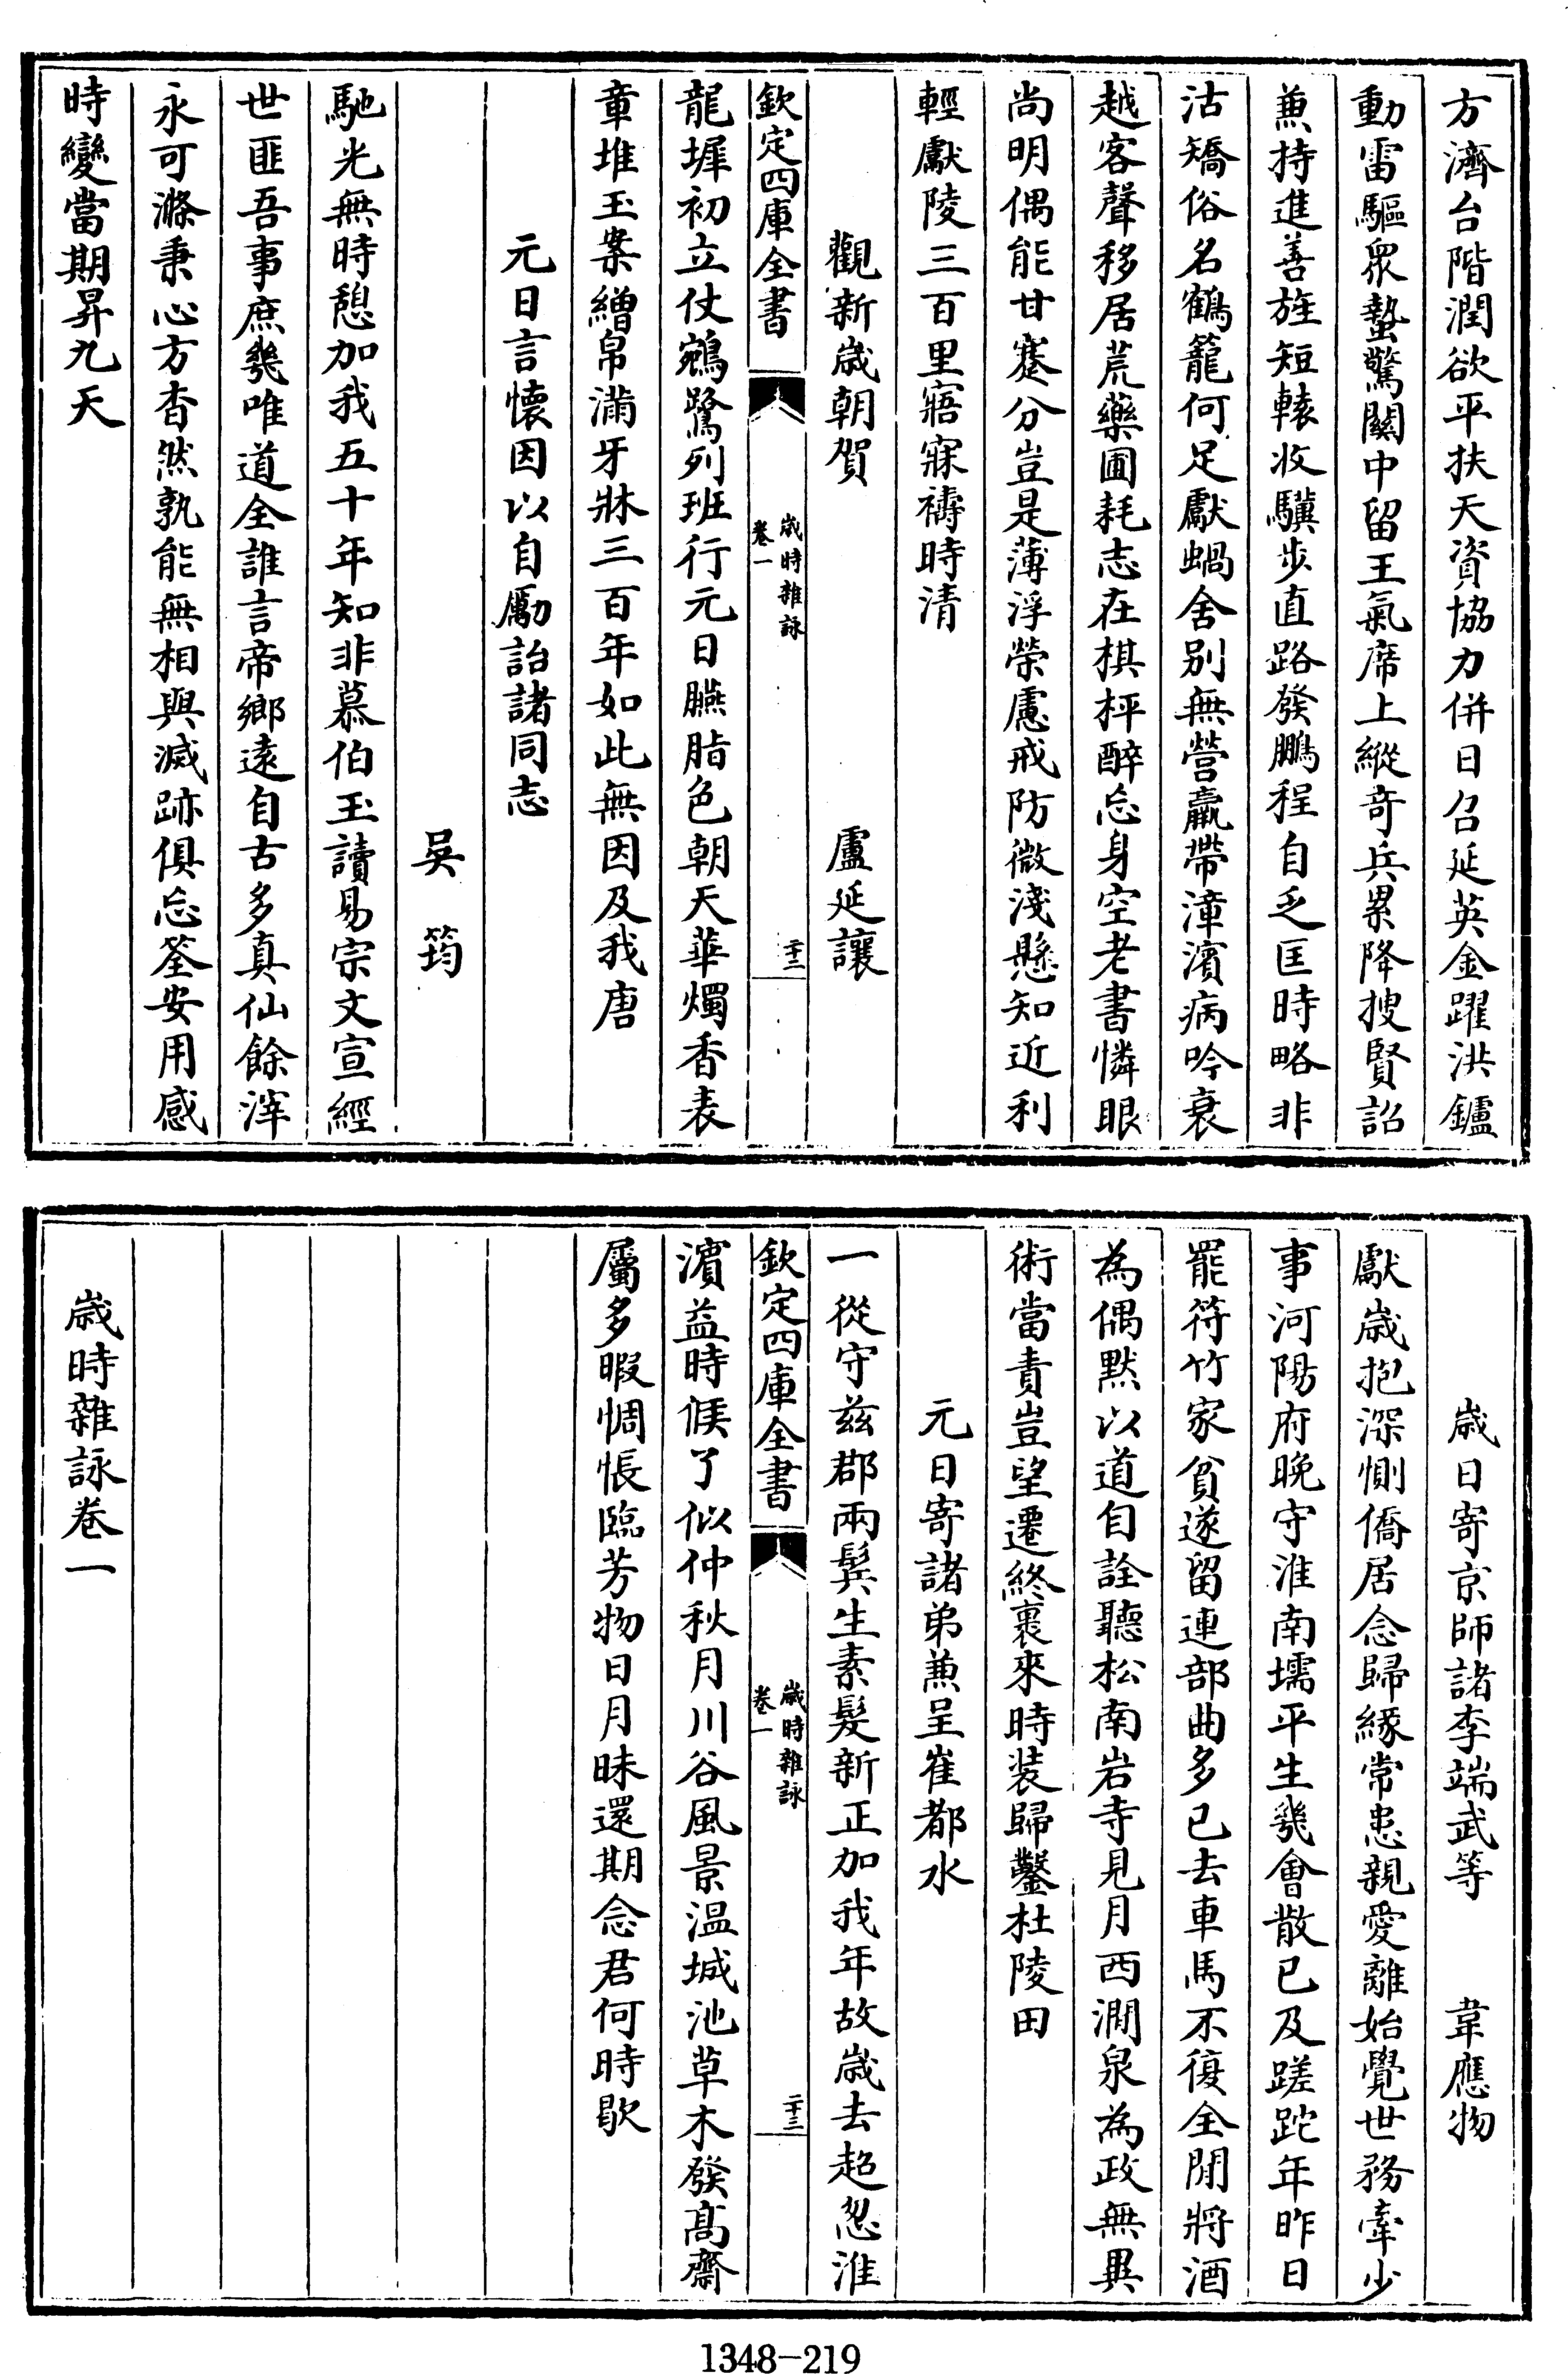 方濟台階潤欲平扶天資協力併日召延英金躍洪鑪
動雷驅衆蟄驚關中留王氣席上縱奇兵累降搜賢詔
兼持進善旌短轅收驥步直路發鵬程自乏匡時略非
沽矯俗名鶴籠何足獻蝸舍別無營羸帶漳濱病吟衰
越客聲移居荒藥圃耗志在棋枰醉忘身空老書憐眼
尚明偶能甘蹇分豈是薄浮榮慮戒防微淺懸知近利
輕獻陵三百里寤寐禱時清
觀新歲朝賀 盧延讓
欽定四庫全書 歲時雜詠 卷一 二十二
龍墀初立仗鵷鷺列班行元日臙脂色朝天華燭香表
章堆玉案繒帛滿牙牀三百年如此無因及我唐
元日言懷因以自勵詒諸同志
吳筠
馳光無時憩加我五十年知非慕伯玉讀易宗文宣經
世匪吾事庶幾唯道全誰言帝鄉遠自古多真仙餘滓
永可滌秉心方杳然孰能無相與滅跡俱忘筌安用感
時變當期昇九天
歲日寄京師諸李端武等 韋應物
獻歲抱深惻僑居念歸緣常患親愛離始覺世務牽少
事河陽府晚守淮南壖平生幾會散已及蹉跎年昨日
罷符竹家貧遂留連部曲多已去車馬不復全閒將酒
為偶默以道自詮聽松南岩寺見月西澗泉為政無異
術當責豈望遷終裹來時裝歸鑿杜陵田
元日寄諸弟兼呈崔都水
一從守茲郡兩鬓生素髮新正加我年故歲去超忽淮
欽定四庫全書 歲時雜詠 卷一 二十三
濱益時候了似仲秋月川谷風景溫城池草木發高齋
屬多暇惆悵臨芳物日月昧還期念君何時歇
歲時雜詠卷一
1348-219